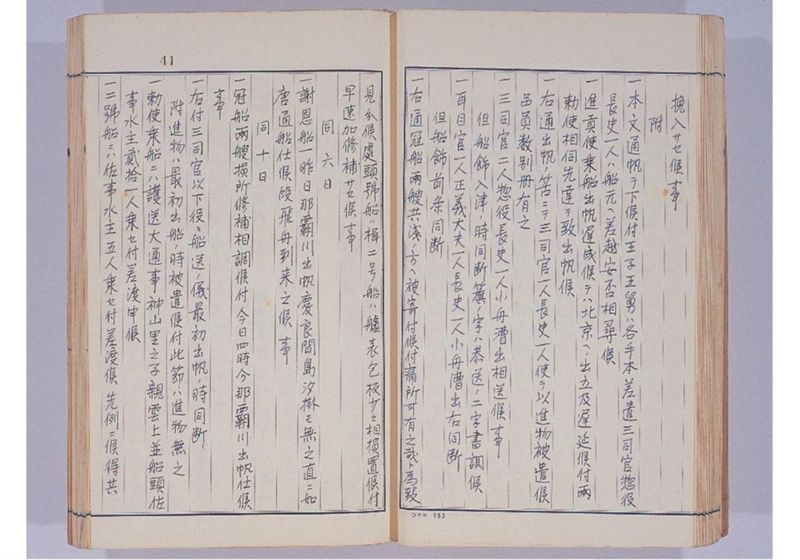 挽入サセ候事
附
一本文通帆ヲ下候付王子王舅ハ各手本差遣三司官惣役
長史一人ハ船元ヘ差越安否相尋候
一進貢使乗船出帆遅成候テハ北京ヘノ出立及遅延候付両
勅使相伺先達テ致出帆候
一右通出帆ノ筈ニテ三司官一人長史一人使ヲ以進物被遣候
品員数別冊有之
一三司官二人惣役長史一人小舟漕出相送候事
但船飾入津ノ時同断籏ノ字ハ恭送ノ二字書調候
一耳目官一人正義大夫一人長史一人小舟漕出右同断
但船飾前条同断
一右通冠船両艘共浅ノ方ヘ被寄付候付痛所可有之哉ト為致
41
見分候處頭號船楫二号ノ船ハ艫表包板少々相損置候付
早速加修補サセ候事
同六日
一謝恩船一昨日那覇川出帆慶良間島汐掛モ無之直ニ如
唐通船仕候段飛舟到来之候事
同十日
一冠船両艘損所修補相調候付今日四時今那覇川出帆仕候
事
一右付三司官以下役々船送ノ儀最初出帆ノ時同断
附進物ハ最初出船ノ時被遣候付此節ハ進物無之
一勅使乗船ニハ護送大通事神山里之子親雲上並船頭佐
事水主貳拾一人乗セ付差渡申候
一二號船ニハ佐事水主五人乗セ付差渡候先例ニ候得共